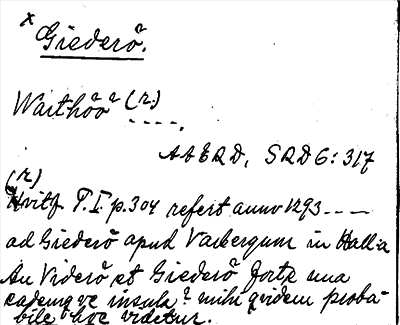 x
Giederö.
Warthöö (r.) ----.
AAERD, SRD 6:317
(r)
Hvitf. T.I. p.304 refert anno 1293 ----
ad Giederö apud Varbergum in Hallia
An Viderö et Giederö forte una
eademqve insula? mihi qvidem proba-
bile hoc videtur.